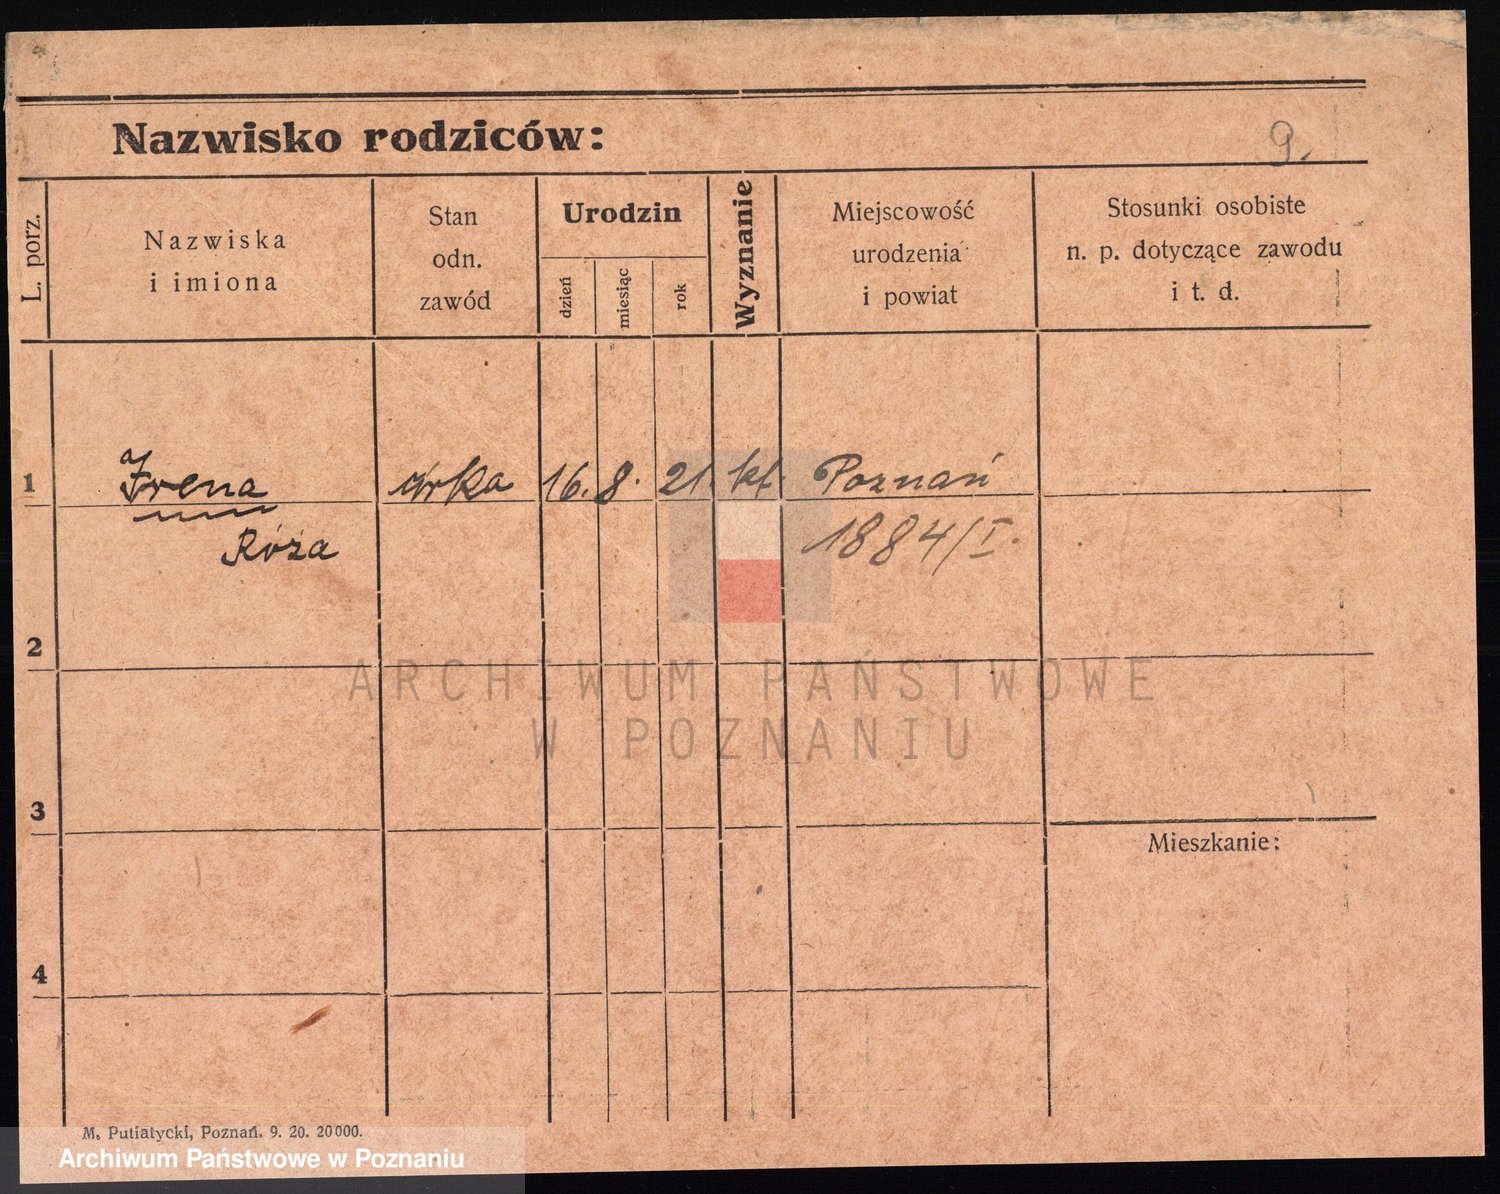 Nazwisko rodziców:
9.
L. porz.
Nazwiska
i imiona
Stan
odn.
zawód
Urodzin
dzień
miesiąc
rok
Wyznanie
Miejscowość
urodzenia
i powiat
Stosunki osobiste
n. p. dotyczące zawodu
i t. d.
1 Irena córka 16. 8. 21. kt. Poznań
Róża 1884/I.
2
ARCHIWUM PAŃSTWOWE
W POZNANIU
3
Mieszkanie:
4
M. Putiatycki, Poznań. 9. 20. 20000.
Archiwum Państwowe w Poznaniu